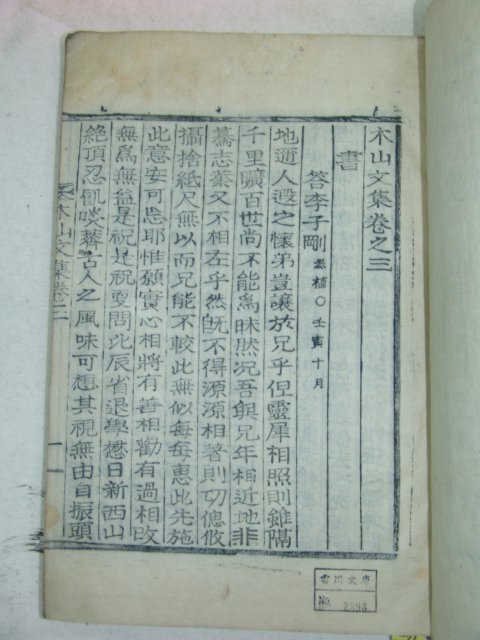 木山文集卷之三
書
答李子剛 基植○壬寅十月
地邇人遐之懷弟豈讓於兄乎但靈犀相照則雖隔
千里曠百世尚不能爲昧然况吾與兄年相近地非
驀志業又不相左乎然旣不得源源相著則切偲攸
攝捨紙尺無以而兄能不較此無似每每惠此先施
此意安可忘耶惟願實心相將有善相勸有過相改
無爲無益是祝是祝更問比辰省退學懋日新西山
絶頂忍飢啖薺古人之風味可想其視無由自振頭
木山文集卷三
一
雲川文庫
No. 2898